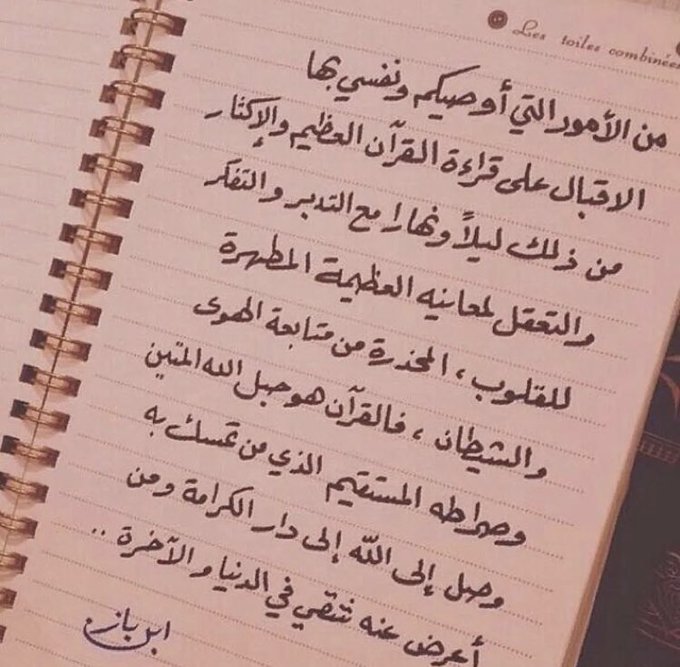 Les toiles combinées
من الأمور التي أوصيكم ونفسي بها
الاقبال على قراءة القرآن العظيم والإكثار
من ذلك ليلاً ونهارا مع التدبر والتفكر
والتعقل لمعانيه العظيمة المطهرة
للقلوب ، المحذرة من متابعة الهوى
والشيطان ، فالقرآن هو حبل الله المتين
وصراطه المستقيم الذي من تمسك به
وصل إلى الله إلى دار الكرامة ومن
أعرض عنه شقي في الدنيا والآخرة ..
ابن باز